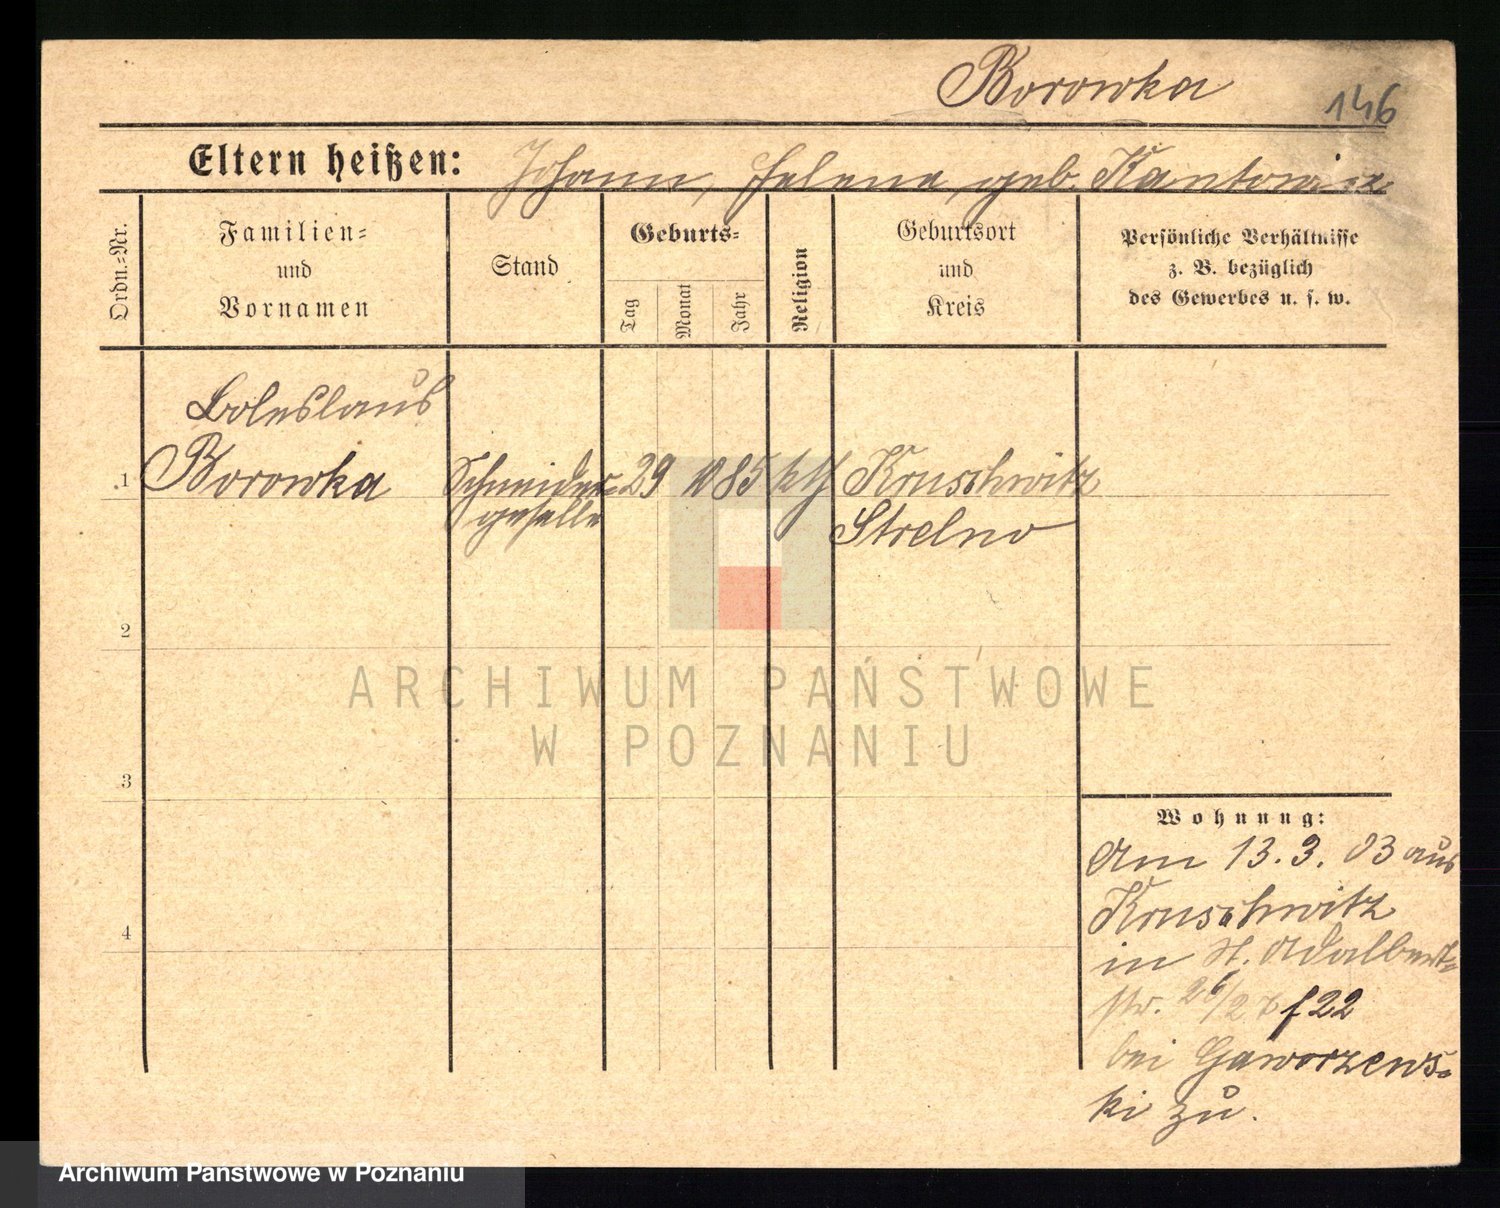 Borowka
146
Eltern heißen: Johann, Helene, geb. Kantowicz
Ordn.=Nr.
Familien=
und
Vornamen
Stand
Geburts=
Tag
Monat
Jahr
Religion
Geburtsort
und
Kreis
Persönliche Verhältnisse
z. B. bezüglich
des Gewerbes u. s. w.
Boleslaus
1 Borowka Schneider= 29 10 85 kth Kruschwitz
geselle Strelno
2
ARCHIWUM PAŃSTWOWE
W POZNANIU
3
Wohnung:
Am 13.3.03 aus
Kruschwitz
4
in St. Adalbert=
str. 26/27 f 22
bei Gaworzews=
ki zu.
Archiwum Państwowe w Poznaniu